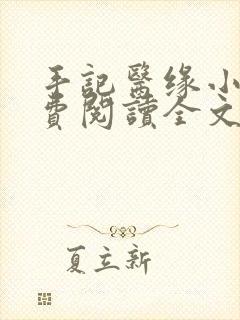 手記醫缘小
費閱讀全文
夏立新